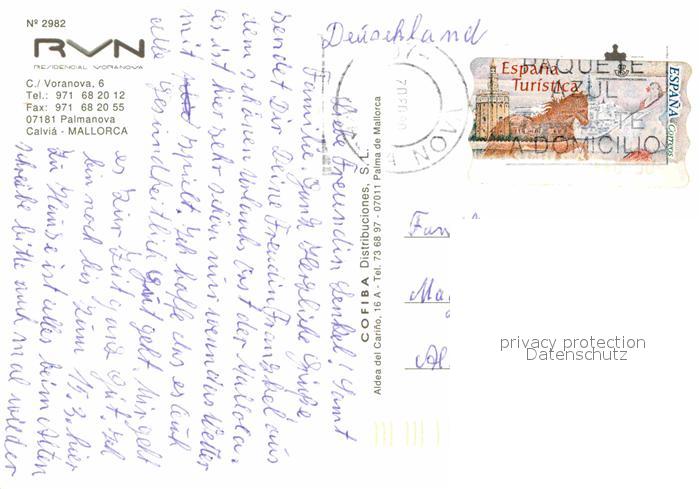 Nº 2982
RVN
RESIDENCIAL VORANOVA
C./ Voranova, 6
Tel.: 971 68 20 12
Fax: 971 68 20 55
07181 Palmanova
Calviá - MALLORCA
Deutschland
España
Turística
ESPAÑA
Correos
PAQUETE
AZUL
A DOMICILIO
COFIBA Distribuciones, S.L.
Aldea del Cariño, 16 A - Tel. 73 68 97 - 07011 Palma de Mallorca
Liebe Freundin Henkel! Samt
Familie. Ganz Herzliche Grüße
sendet Dir Deine Freundin aus
dem schönen Urlaub aus der Mallorca.
Es ist hier sehr schön nur wenn das Wetter
mit spielt. Ich hoffe das es auch
alle Gesundheitlich gut geht. Mir geht
es zur Zeit ganz gut. Ich
bin noch bis zum 15.3. hier
zu Hause ist alles beim Alten
schreibe bitte auch mal wieder
Fam
Ma
Al
privacy protection
Datenschutz